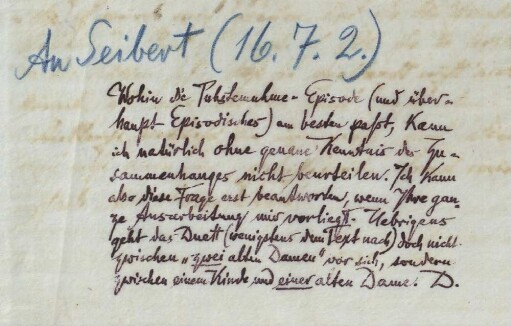 An Seibert (16.7.2.)
Wohin die -Episode (und über-
haupt Episodisches) am besten paßt, kann
ich natürlich ohne genaue Kenntnis des Zu-
sammenhanges nicht beurteilen. Ich kann
also diese Frage erst beantworten, wenn Ihre gan-
ze Ausarbeitung mir vorliegt. Uebrigens
geht das Duett (wenigstens dem Text nach) doch nicht
zwischen „zwei alten Damen" vor sich, sondern
zwischen einem Kinde und einer alten Dame. D.